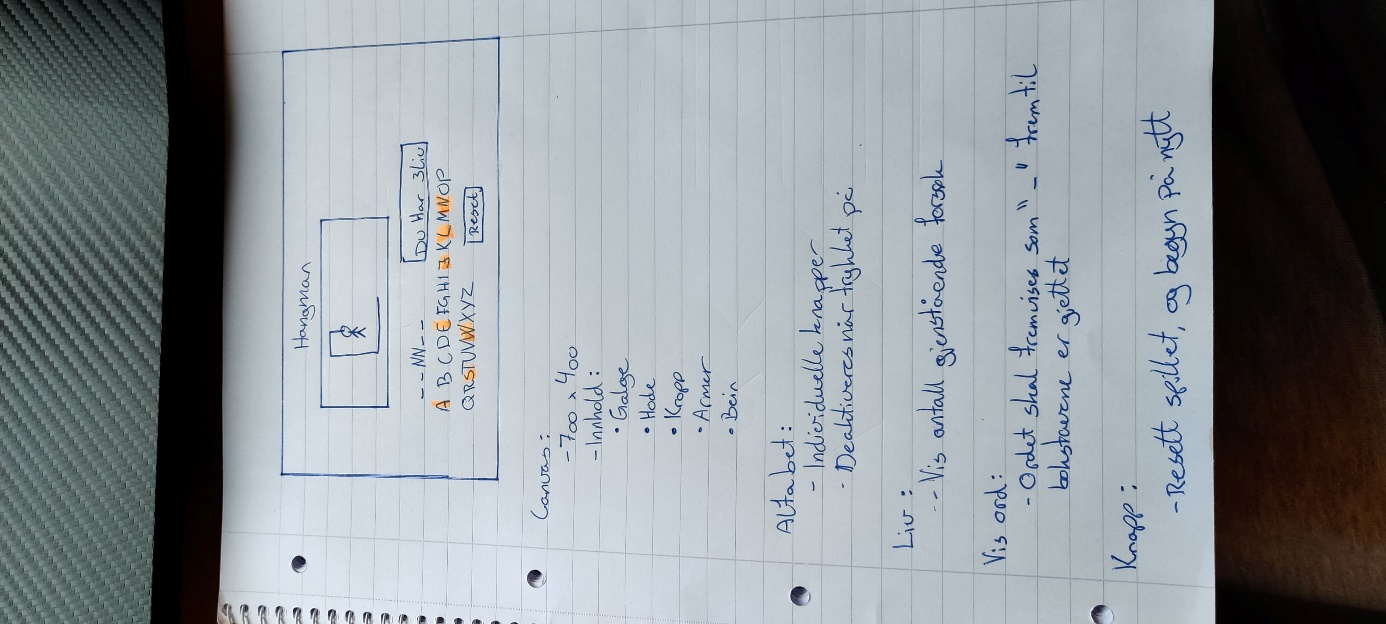 Hangman
- - - NN - -
Du Har 3 Liv
A B C D E F G H I J K L M N O P
Q R S T U V W X Y Z
Reset
Canvas:
- 700 x 400
- Innhold:
• Galge
• Hode
• Kropp
• Armer
• Bein
Alfabet:
- Individuelle knapper
- Deaktiveres når trykket på
Liv:
- Vis antall gjenstående forsøk
Vis ord:
- Ordet skal fremvises som "_" frem til
bokstavene er gjettet
Knapp:
- Resett spillet, og begyn på nytt